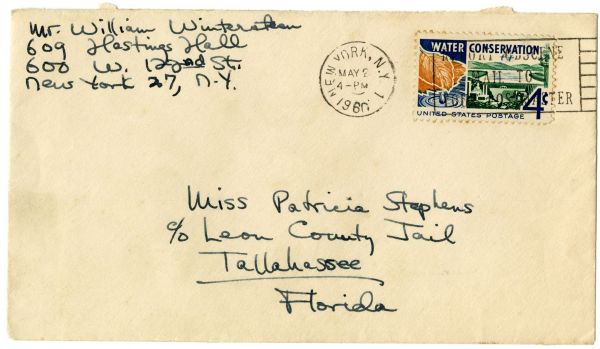 Mr. William Wintersteen
609 Hastings Hall
600 W. 122nd St.
New York 27, N.Y.
NEW YORK, N.Y. 1
MAY 2
4-PM
1960
WATER CONSERVATION
REPORT OBSCENE
MAIL TO
4c
UNITED STATES POSTAGE
Miss Patricia Stephens
c/o Leon County Jail
Tallahassee
Florida